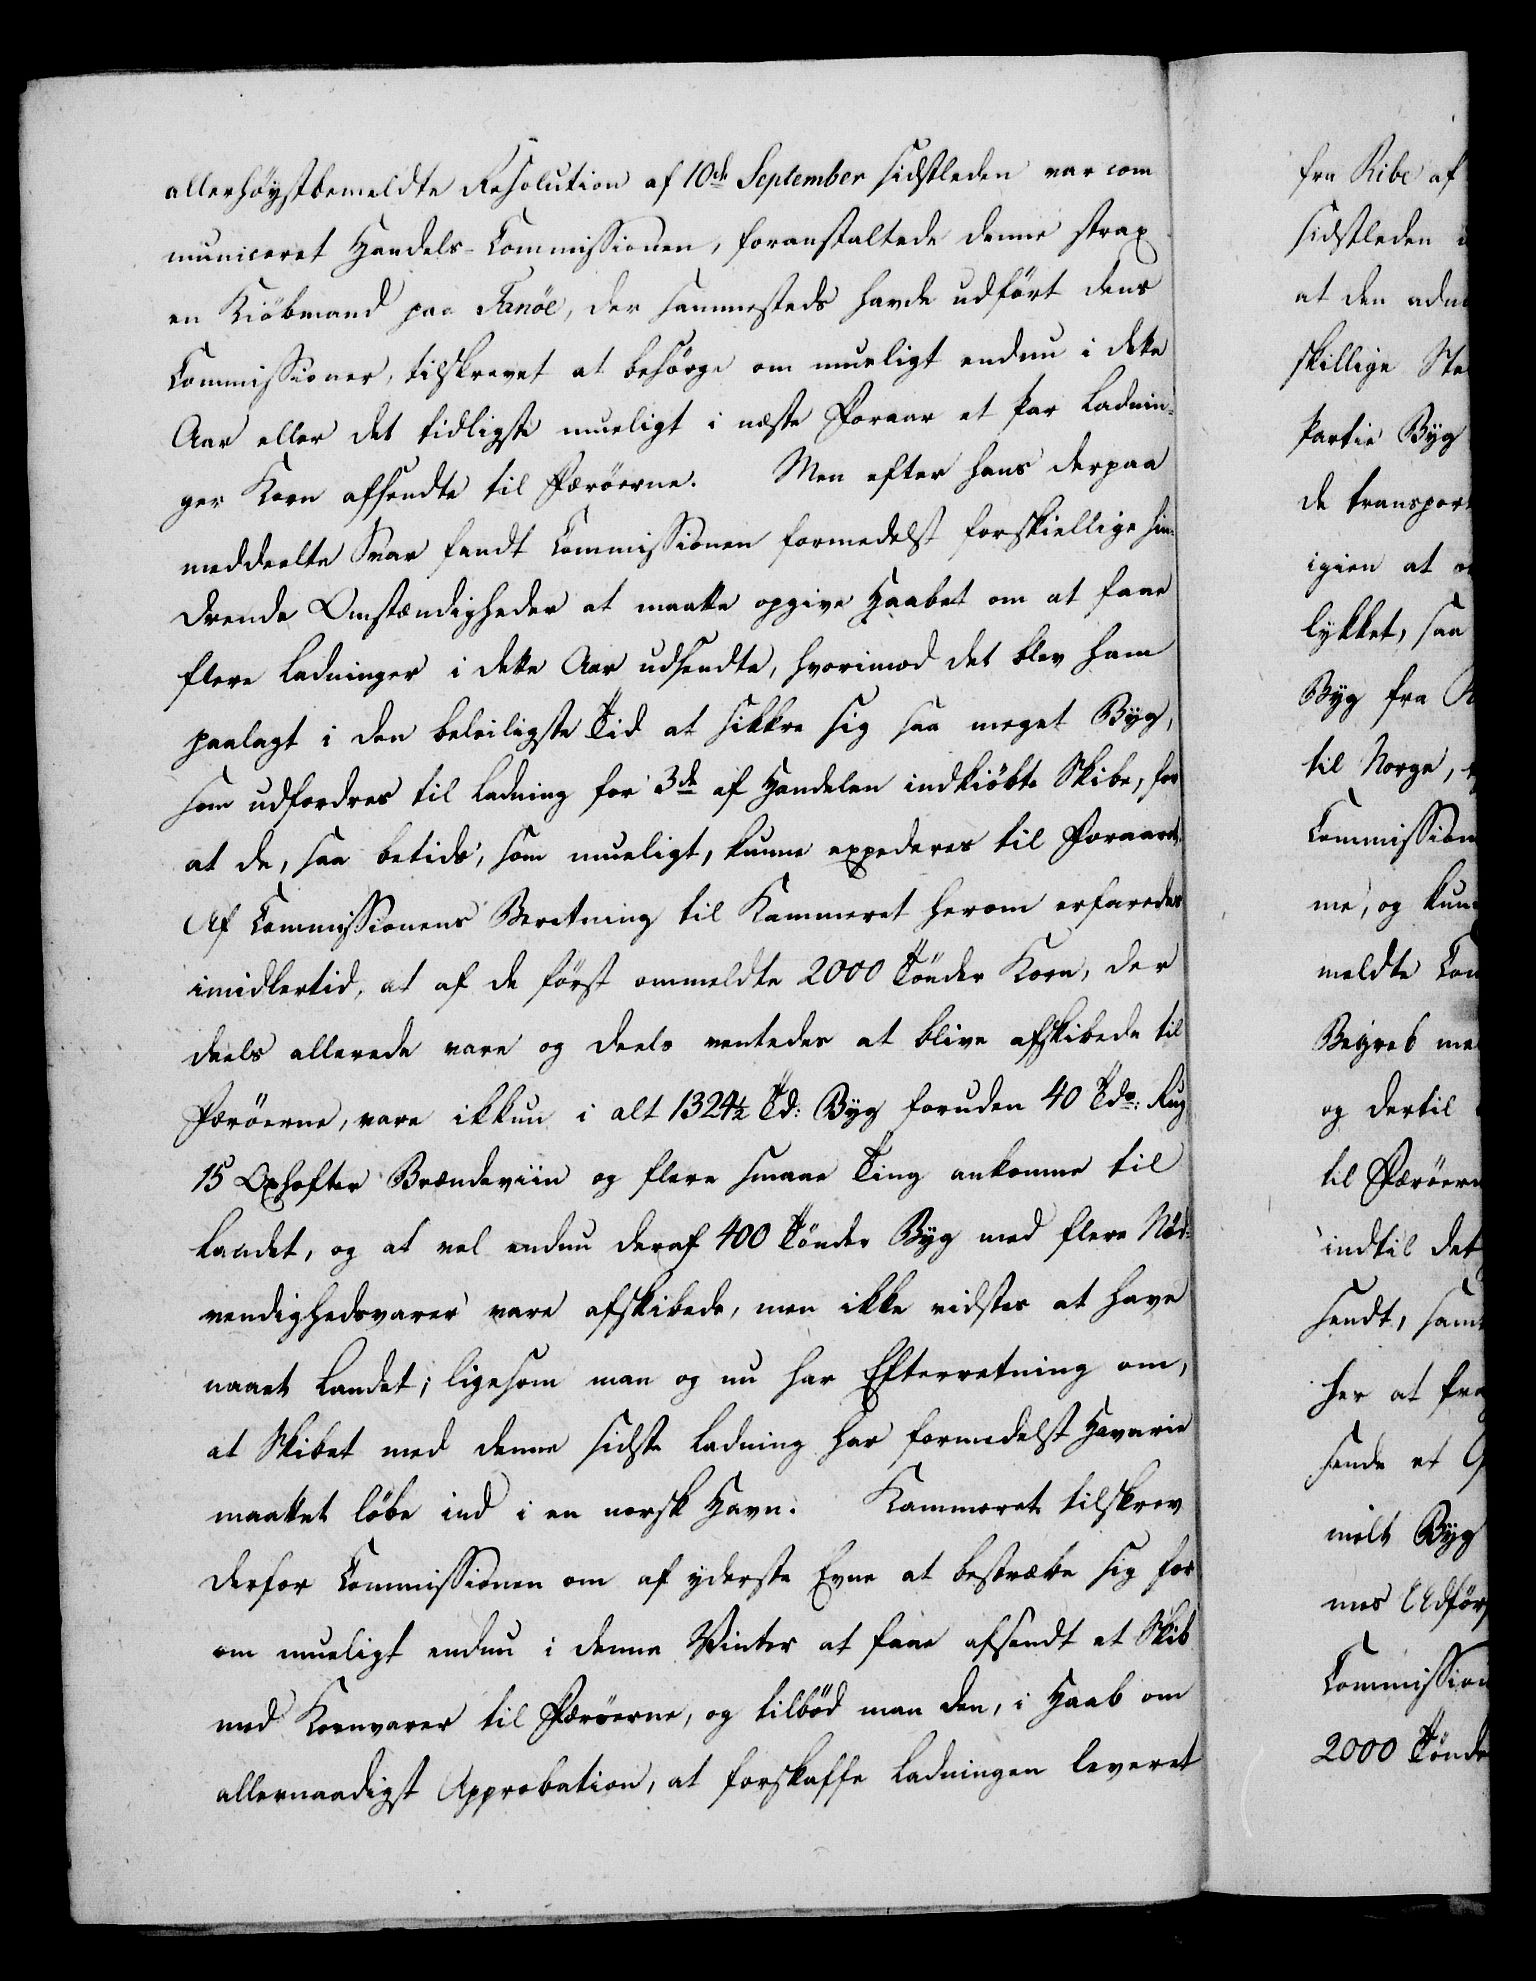 allerhöystbemeldte Resolution af 10de September sidstleden var com
municeret Handels-Commissionen, foranstaltede denne strax
en Kiöbmand paa Fanöe, der sammesteds havde udfört dens
Commissioner, tilskrevet at besörge om mueligt endnu i dette
Aar eller det tidligste mueligt i næste Foraar et par Ladnin-
ger Korn afsendte til Færöerne. Men efter hans derpaa
meddeelte Svar fandt Commissionen formedelst forskiellige hin-
drende Omstændigheder at maatte opgive Haabet om at faae
flere Ladninger i dette Aar udsendte, hvorimod det blev ham
paalagt i den beleiligste Tid at sikkre sig saa meget Byg,
som udfordres til Ladning for 3de af Handelen indkiöbte Skibe, for
at de, saa betids, som mueligt, kunne expederes til Foraaret.
Af Commissionens Beretning til Kammeret herom erfaredes
imidlertid, at af de först ommeldte 2000 Tönder Korn, der
deels allerede vare og deels ventedes at blive afskibede til
Færöerne, vare ikkun i alt 1324½ Td: Byg foruden 40 Tdr: Rug
15 Oxhofter Brændeviin og flere smaae Ting ankomne til
Landet, og at vel endnu deraf 400 Tönder Byg med flere Nöd-
vendighedsvarer vare afskibede, men ikke vidstes at have
naaet Landet; ligesom man og nu har Efterretning om,
at Skibet med denne sidste Ladning har formedelst Havarie
maattet löbe ind i en norsk Havn. Kammeret tilskrev
derfor Commissionen om af yderste Evne at bestræbe sig for
om mueligt endnu i denne Winter at faae afsendt et Skib
med Kornvarer til Færöerne, og tilböd man den, i Haab om
allernaadigst Approbation, at forskaffe Ladningen leveret
fra Ribe af
sidstleden
at den
skillige
Partie Byg
de
igien at
lykket, saa
Byg fra
til Norge,
me, og
meldte
Begreb
og dertil
til
indtil det
sendt,
her at
sende et
Byg
2000